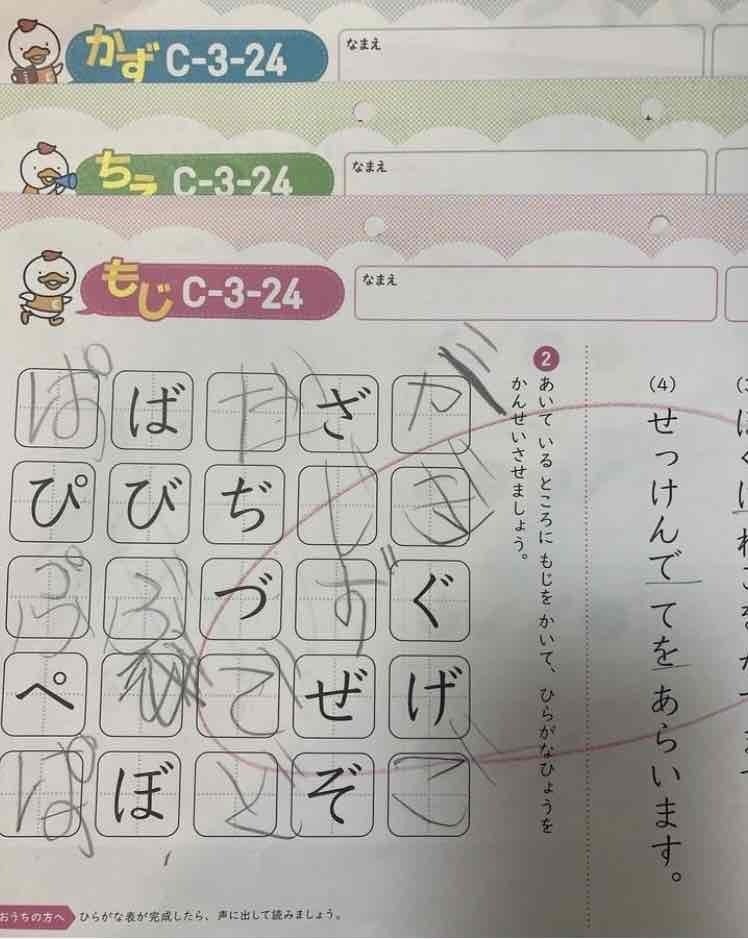 かず C-3-24
なまえ
ちえ C-3-24
なまえ
もじ C-3-24
なまえ
(4) せっけんで てを あらいます。
2
あいて いる ところに もじを かいて、ひらがなひょうを
かんせいさせましょう。
が ぎ ぐ げ ご
ざ じ ず ぜ ぞ
だ ぢ づ で ど
ば び ぶ ぼ
ぱ ぴ ぷ ぺ ぱ
おうちの方へ ひらがな表が完成したら、声に出して読みましょう。